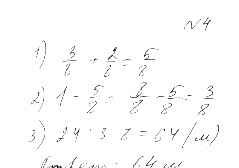 №4
1) 3/8 + 2/8 = 5/8
2) 1 - 5/8 = 8/8 - 5/8 = 3/8
3) 24 : 3 · 8 = 64 (м)
Ответ: 64 м